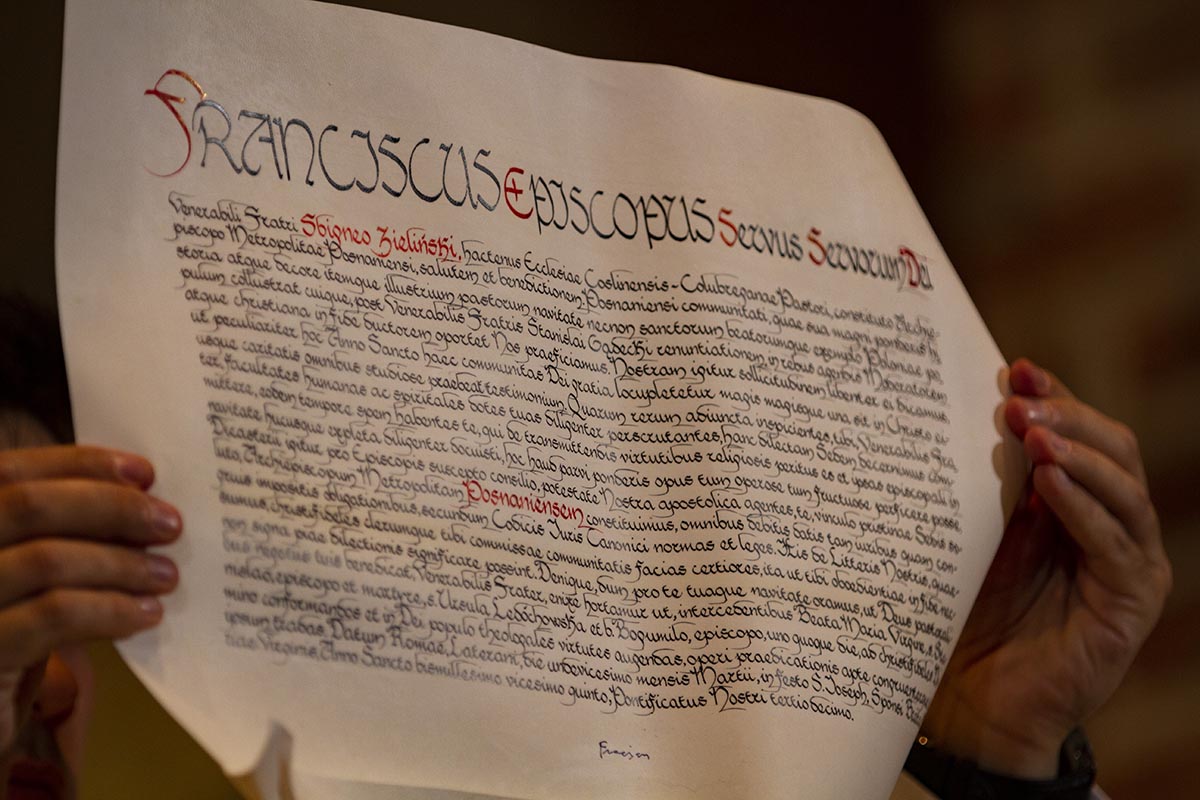 FRANCISCUS EPISCOPUS Servus Servorum Dei
Venerabili Fratri Sbigneo Zieliński, hactenus Ecclesiae Coslinensis-Colubreganae Pastori, constituto Archie-
piscopo Metropolitae Posnaniensi, salutem et benedictionem. Posnaniensi communitati, quae sua magni ponderis hi-
storia atque decore itemque illustrium pastorum navitate necnon sanctorum beatorumque exemplo Poloniae po-
pulum collustrat cuique, post Venerabilis Fratris Stanislai Gądecki renuntiationem in rebus agendis Moderatorem
atque christiana in fide ductorem oportet Nos praeficiamus. Nostram igitur sollicitudinem libenter ei dicamus,
ut peculiariter hoc Anno Sancto haec communitas Dei gratia locupletetur magis magisque una sit in Christo ei-
usque caritatis omnibus studiose praebeat testimonium. Quarum rerum adiuncta inspicientes, tibi, Venerabilis Fra-
ter, facultates humanas ac spiritales dotes tuas diligenter perscrutantes, hanc dilectam Sedem decernimus com-
mittere, eodem tempore spem habentes te, qui de transmittendis virtutibus religiosis peritus es et ipsas episcopali in
navitate hucusque expleta diligenter docuisti, hoc haud parvi ponderis opus tum operose tum fructuose perficere posse.
Dicasterii igitur pro Episcopis suscepto consilio, potestate Nostra apostolica agentes, te, vinculo pristinae Sedis so-
luto, Archiepiscopum Metropolitam Posnaniensem constituimus, omnibus debitis datis tam iuribus quam con-
gruis impositis obligationibus, secundum Codicis Iuris Canonici normas et leges. de Litteris Nostris, quae-
sumus, christifideles clerumque tibi commissae communitatis facias certiores, ita ut tibi obedientiae in fide nec-
non signa piae dilectionis significare possint. Denique, dum pro te tuaque navitate oramus, ut Deus pastoral-
ibus negotiis tuis benedicat, Venerabilis Frater, enixe hortamur ut, intercedentibus Beata Maria Virgine, s.
episcopo et martyre, s. Ursula Ledóchowska et b. Bogumilo, episcopo, uno quoque die, ab christifideles
mino conformandos et in Dei populo theologales virtutes augendas, operi praedicationis apte congruenter
ipsum tradas. Datum Romae, Laterani, die undevicesimo mensis Martii, in festo S. Joseph, Sponsi
riae Virginis, Anno Sancto bismillesimo vicesimo quinto, Pontificatus Nostri tertio decimo.